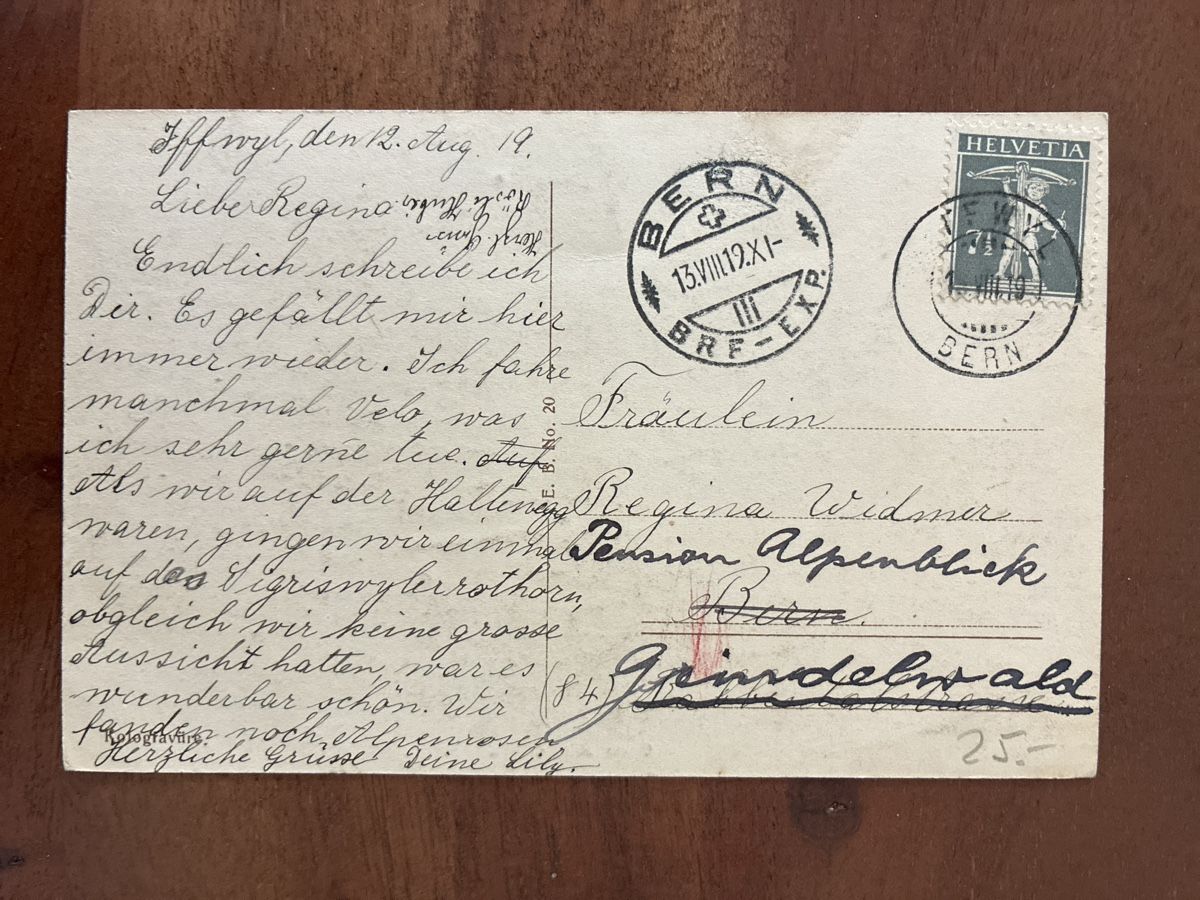 Iffwyl, den 12. Aug. 19.
Liebe Regina
Herzl. Gruss
Rösli Huber
Endlich schreibe ich
Dir. Es gefällt mir hier
immer wieder. Ich fahre
manchmal Velo, was
ich sehr gerne tue. Auf
Als wir auf der Haltenegg
waren, gingen wir einmal
auf das Sigriswylerrothorn,
obgleich wir keine grosse
Aussicht hatten, war es
wunderbar schön. Wir
fanden noch Alpenrosen
Herzliche Grüsse Deine Lily.
Kologravure.
E. B. No. 20
BERN
13.VIII.19.XI-
III
BRF-EXP.
HELVETIA
7½
VIII.19
BERN
Fräulein
Regina Widmer
Pension Alpenblick
Bern.
Grindelwald
(84)
25.-